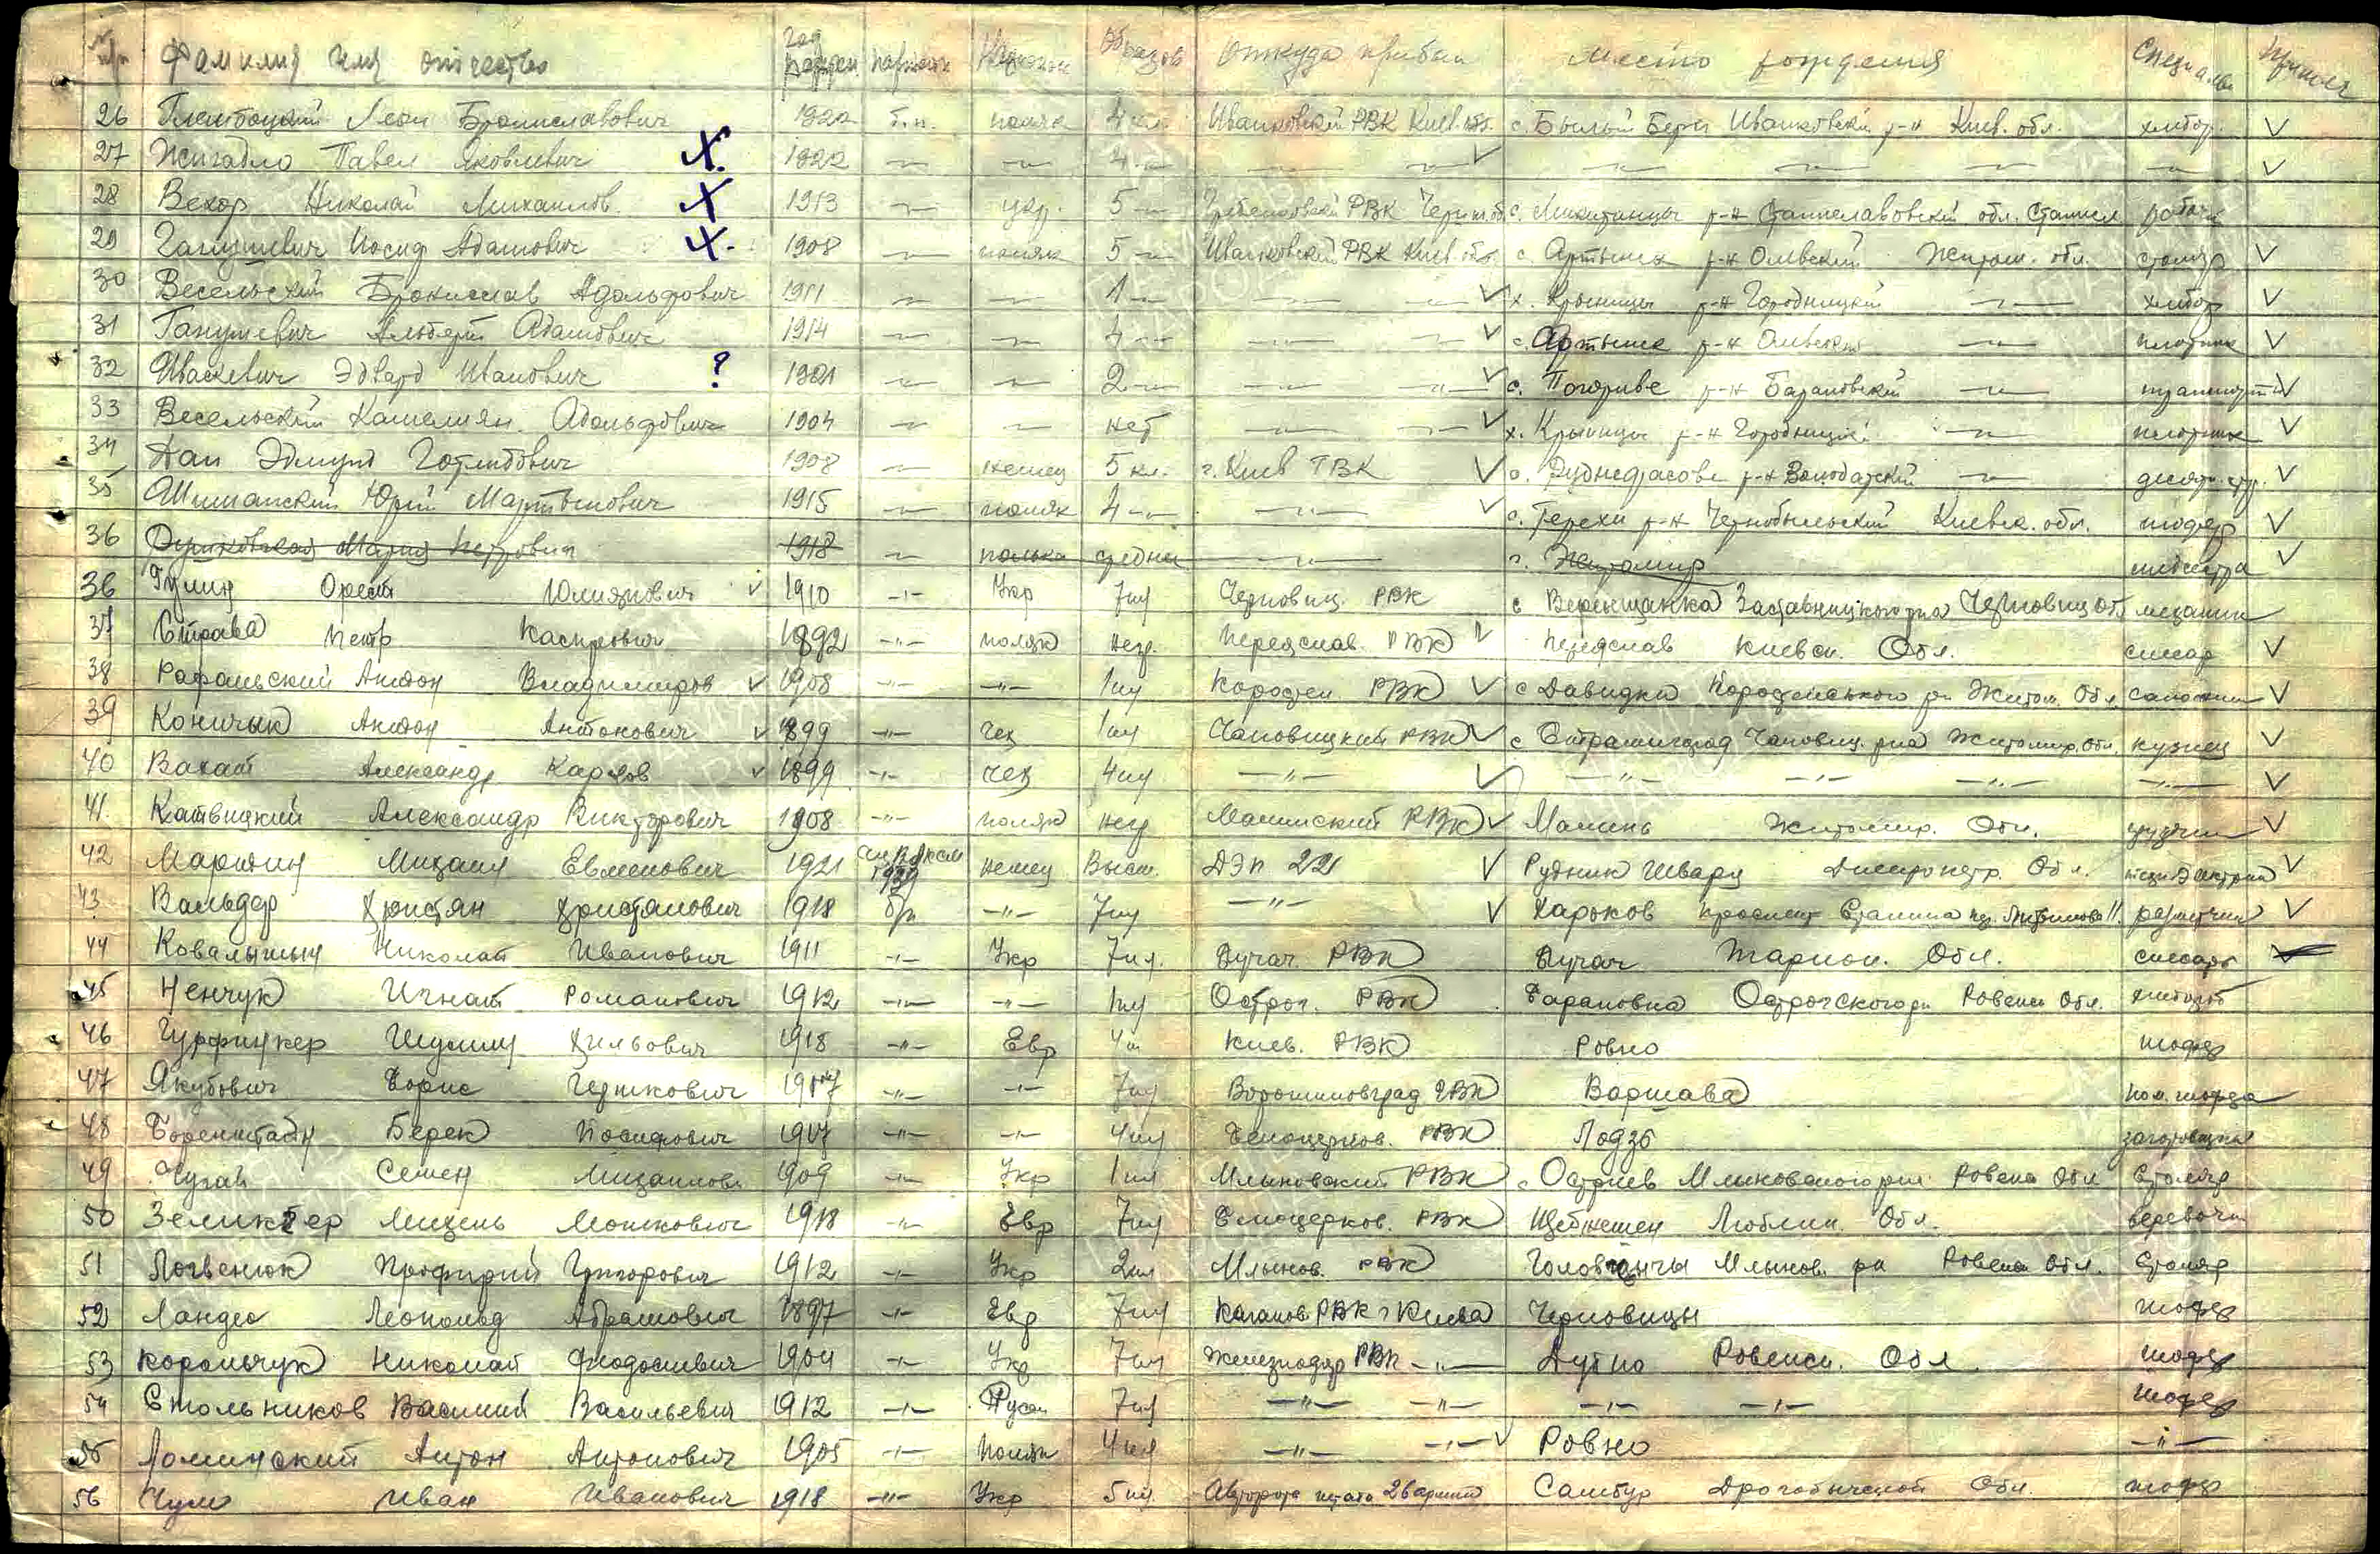 № п/п Фамилия имя отчество год рожден партийн Национ Образов откуда прибыл место рождения Специальн Примеч
26 Глембоцкий Леон Брониславович 1922 б.п. поляк 4 кл. Иванковский РВК Киев. обл. с. Былый Берег Иванковский р-н Киев. обл. хлебор. V
27 Жигадло Павел Яковлевич X 1922 —"— —"— 4 —"— —"— —"— V —"— —"— —"— —"— V
28 Вехор Николай Михайлов. X 1913 —"— укр. 5 —"— РВК с. Микитинцы р-н Станиславовский обл. Станисл рабочий
29 Ганушевич Иосиф Адамович X 1908 —"— поляк 5 —"— Иванковский РВК Киев. обл. с. Артынск р-н Олевский Житом. обл. столяр V
30 Весельский Бронислав Адольфович 1911 —"— —"— 1 —"— —"— —"— V х. Крыницы р-н Городницкий —"— хлебор V
31 Ганушевич Альберт Адамович 1914 —"— —"— 4 —"— —"— —"— V с. Артынск р-н Олевский —"— плотник V
32 Ивашкевич Эдвард Иванович ? 1901 —"— —"— 2 —"— —"— —"— V с. р-н Барановский —"— V
33 Весельский Адольфович 1904 —"— —"— нет —"— —"— V х. Крыницы р-н Городницкий —"— плотник V
34 Эдмунд Готлибович 1908 —"— немец 5 кл. г. Киев ГВК V с. р-н —"— V
35 Шиманский Юрий Мартынович 1915 —"— поляк 4 —"— —"— V с. Терехи р-н Чернобыльский Киевск. обл. шофер V
36 Мария Петровна 1918 —"— полька средне —"— г. Житомир медсестра V
36 Гулин Орест Юлиянович v 1910 —"— Укр 7кл Черновиц. РВК с Веренчанка Заставницкого рна Черновиц Обл механик
37 Страва Петр Каспрович 1892 —"— поляк негр. Переяслав. РВК V Переяслав Киевск. Обл. слесар V
38 Рафальский Антон Владимиров v 1908 —"— —"— 1кл Коростен РВК V с Давидки Коростенського рн Житом. Обл. сапожник V
39 Коничык Антон Антонович v 1899 —"— чех 1кл Чаповицкий РВК V с Чаповиц. рна Житомир. Обл. кузнец V
40 Вахат Александр Карлов v 1899 —"— чех 4кл —"— V —"— —"— —"— —"— V
41. Катвицкий Александр Викторович 1908 —"— поляк негр Малинский РВК V Малинь Житомир. Обл. грузчик V
42 Мартин Михаил Евменович 1921 1939 немец Высш. ДЭП 221 V Рудник Шварц Днепропетр. Обл. V
43 Вальдер Христян Христянович 1918 б/п —"— 7кл —"— V Харьков проспект Сталина разметчик V
44 Ковалышын Николай Иванович 1911 —"— Укр 7кл. Бучач РВК Бучач Тарноп. Обл. слесарь V
45 Ненчук Игнат Романович 1912 —"— —"— 1кл Острог. РВК Барановка Острогского рн Ровенск Обл. хлебороб
46 Гурфинкер Шулим Хильович 1918 —"— Евр 4кл Киев. РВК Ровно шофер
47 Якубович Борис Гершкович 1917 —"— —"— 7кл Ворошиловград ГВК Варшава пом. шофера
48 Боренштайн Берек Йосифович 1917 —"— —"— 4кл Белоцерков. РВК Лодзь заготовщик
49 Чугай Семен Михайлови 1909 —"— Укр 1кл Млыновский РВК с Остриев Млиновского рна Ровенс Обл Столяр
50 Зеликтер Мошкович 1918 —"— Евр 7кл Белоцерков. РВК Щебжешен Люблин. Обл.
51 Логвенюк Профирий Григорович 1912 —"— Укр 2кл Млынов. РВК Млынов. рн Ровенск Обл. Столяр
52 Ландес Леопольд Абрамович 1897 —"— Евр 7кл Каганов. РВК г Киева Черновицы шофер
53 Корольчук Николай Феодосиевич 1904 —"— Укр 7кл Железнодор РВК —"— Дубно Ровенск. Обл. шофер
54 Стольников Василий Васильевич 1912 —"— Руски 7кл —"— —"— —"— —"— шофер
55 Ломинский Антон Антонович 1905 —"— Поляк 4кл —"— —"— V Ровно —"—
56 Чум Иван Иванович 1918 —"— Укр 5кл. Авторота штаба 2й армии Самбур Дрогобыческой Обл. шофер